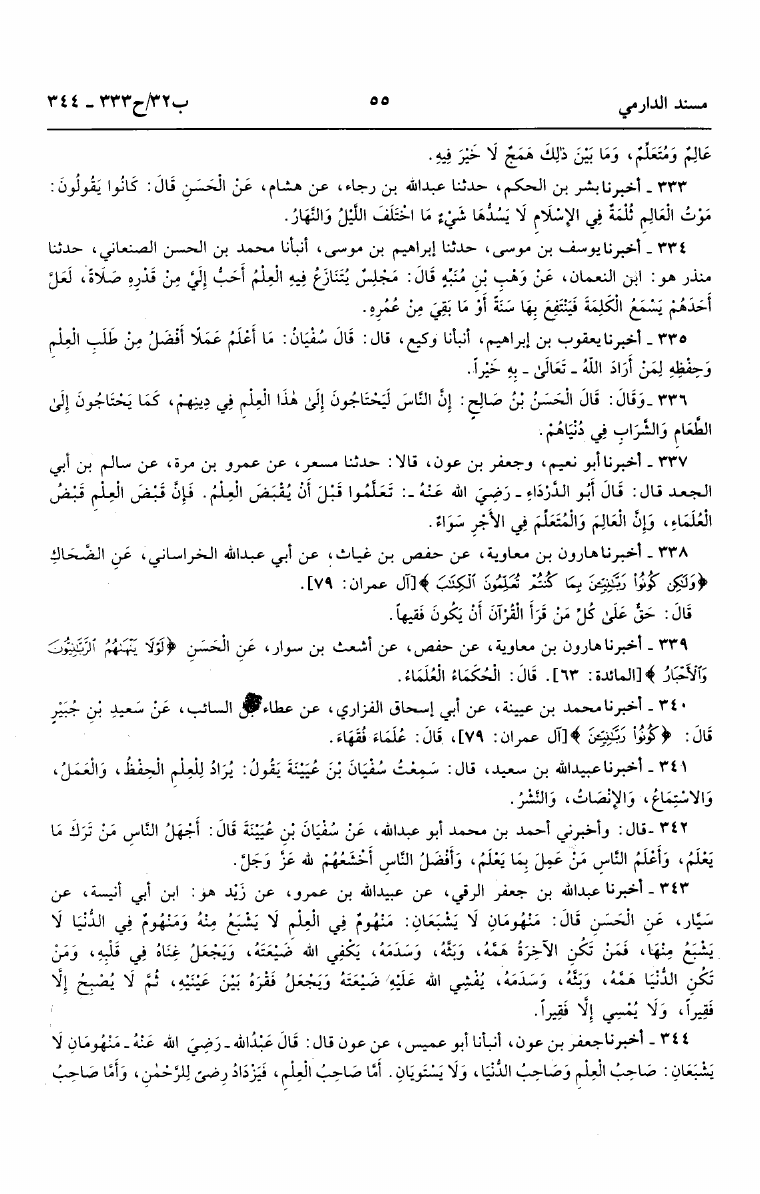 مسند الدارمي ٥٥ ب٣٢/ح٣٣٣ ـ ٣٤٤
عَالِمٌ وَمُتَعَلِّمٌ، وَمَا بَيْنَ ذٰلِكَ هَمَجٌ لَا خَيْرَ فِيهِ.
٣٣٣ ـ أخبرنا بشر بن الحكم، حدثنا عبدالله بن رجاء، عن هشام، عَنْ الْحَسَنِ قَالَ: كَانُوا يَقُولُونَ:
مَوْتُ الْعَالِمِ ثُلْمَةٌ فِي الإِسْلَامِ لَا يَسُدُّهَا شَيْءٌ مَا اخْتَلَفَ اللَّيْلُ وَالنَّهَارُ.
٣٣٤ ـ أخبرنا يوسف بن موسى، حدثنا إبراهيم بن موسى، أنبأنا محمد بن الحسن الصنعاني، حدثنا
منذر هو: ابن النعمان، عَنْ وَهْبِ بْنِ مُنَبِّهٍ قَالَ: مَجْلِسٌ يُتَنَازَعُ فِيهِ الْعِلْمُ أَحَبُّ إِلَيَّ مِنْ قَدْرِهِ صَلَاةً، لَعَلَّ
أَحَدَهُمْ يَسْمَعُ الْكَلِمَةَ فَيَنْتَفِعَ بِهَا سَنَةً أَوْ مَا بَقِيَ مِنْ عُمُرِهِ.
٣٣٥ ـ أخبرنا يعقوب بن إبراهيم، أنبأنا وكيع، قال: قَالَ سُفْيَانُ: مَا أَعْلَمُ عَمَلًا أَفْضَلُ مِنْ طَلَبِ الْعِلْمِ
وَحِفْظِهِ لِمَنْ أَرَادَ اللّهُ ـ تَعَالَىٰ ـ بِهِ خَيْراً.
٣٣٦ ـ وَقَالَ: قَالَ الْحَسَنُ بْنُ صَالِحٍ: إِنَّ النَّاسَ لَيَحْتَاجُونَ إِلَىٰ هٰذَا الْعِلْمِ فِي دِينِهِمْ، كَمَا يَحْتَاجُونَ إِلَىٰ
الطَّعَامِ وَالشَّرَابِ فِي دُنْيَاهُمْ.
٣٣٧ ـ أخبرنا أبو نعيم، وجعفر بن عون، قالا: حدثنا مسعر، عن عمرو بن مرة، عن سالم بن أبي
الجعد قال: قَالَ أَبُو الدَّرْدَاءِ ـ رَضِيَ الله عَنْهُ ـ: تَعَلَّمُوا قَبْلَ أَنْ يُقْبَضَ الْعِلْمُ. فَإِنَّ قَبْضَ الْعِلْمِ قَبْضُ
الْعُلَمَاءِ، وَإِنَّ الْعَالِمَ وَالْمُتَعَلِّمَ فِي الأَجْرِ سَوَاءٌ.
٣٣٨ ـ أخبرنا هارون بن معاوية، عن حفص بن غياث، عن أبي عبدالله الخراساني، عَنِ الضَّحَاكِ
﴿وَلَكِن كُونُوا۟ رَبَّـٰنِيِّـۧنَ بِمَا كُنتُمْ تُعَلِّمُونَ ٱلْكِتَـٰبَ﴾ [آل عمران: ٧٩].
قَالَ: حَقٌّ عَلَىٰ كُلِّ مَنْ قَرَأَ الْقُرْآنَ أَنْ يَكُونَ فَقِيهاً.
٣٣٩ ـ أخبرنا هارون بن معاوية، عن حفص، عن أشعث بن سوار، عَنِ الْحَسَنِ ﴿لَوْلَا يَنْهَىٰهُمُ ٱلرَّبَّـٰنِيُّونَ
وَٱلْأَحْبَارُ﴾ [المائدة: ٦٣]. قَالَ: الْحُكَمَاءُ الْعُلَمَاءُ.
٣٤٠ ـ أخبرنا محمد بن عيينة، عن أبي إسحاق الفزاري، عن عطاء بن السائب، عَنْ سَعِيدِ بْنِ جُبَيْرٍ
قَالَ: ﴿كُونُوا۟ رَبَّـٰنِيِّـۧنَ﴾ [آل عمران: ٧٩]، قَالَ: عُلَمَاءَ فُقَهَاءَ.
٣٤١ ـ أخبرنا عبيدالله بن سعيد، قال: سَمِعْتُ سُفْيَانَ بْنَ عُيَيْنَةَ يَقُولُ: يُرَادُ لِلْعِلْمِ الْحِفْظُ، وَالْعَمَلُ،
وَالاسْتِمَاعُ، وَالإِنْصَاتُ، وَالنَّشْرُ.
٣٤٢ ـ قال: وأخبرني أحمد بن محمد أبو عبدالله، عَنْ سُفْيَانَ بْنِ عُيَيْنَةَ قَالَ: أَجْهَلُ النَّاسِ مَنْ تَرَكَ مَا
يَعْلَمُ، وَأَعْلَمُ النَّاسِ مَنْ عَمِلَ بِمَا يَعْلَمُ، وَأَفْضَلُ النَّاسِ أَخْشَعُهُمْ لله عَزَّ وَجَلَّ.
٣٤٣ ـ أخبرنا عبدالله بن جعفر الرقي، عن عبيدالله بن عمرو، عن زَيْد هو: ابن أبي أنيسة، عن
سَيَّار، عَنِ الْحَسَنِ قَالَ: مَنْهُومَانِ لَا يَشْبَعَانِ: مَنْهُومٌ فِي الْعِلْمِ لَا يَشْبَعُ مِنْهُ وَمَنْهُومٌ فِي الدُّنْيَا لَا
يَشْبَعُ مِنْهَا، فَمَنْ تَكُنِ الآخِرَةُ هَمَّهُ، وَبَثَّهُ، وَسَدَمَهُ، يَكْفِي الله ضَيْعَتَهُ، وَيَجْعَلُ غِنَاهُ فِي قَلْبِهِ، وَمَنْ
تَكُنِ الدُّنْيَا هَمَّهُ، وَبَثَّهُ، وَسَدَمَهُ، يُفْشِي الله عَلَيْهِ ضَيْعَتَهُ وَيَجْعَلُ فَقْرَهُ بَيْنَ عَيْنَيْهِ، ثُمَّ لَا يُصْبِحُ إِلَّا
فَقِيراً، وَلَا يُمْسِي إِلَّا فَقِيراً.
٣٤٤ ـ أخبرنا جعفر بن عون، أنبأنا أبو عميس، عن عون قال: قَالَ عَبْدُالله ـ رَضِيَ الله عَنْهُ ـ مَنْهُومَانِ لَا
يَشْبَعَانِ: صَاحِبُ الْعِلْمِ وَصَاحِبُ الدُّنْيَا، وَلَا يَسْتَوِيَانِ. أَمَّا صَاحِبُ الْعِلْمِ، فَيَزْدَادُ رِضىً لِلرَّحْمٰنِ، وَأَمَّا صَاحِبُ